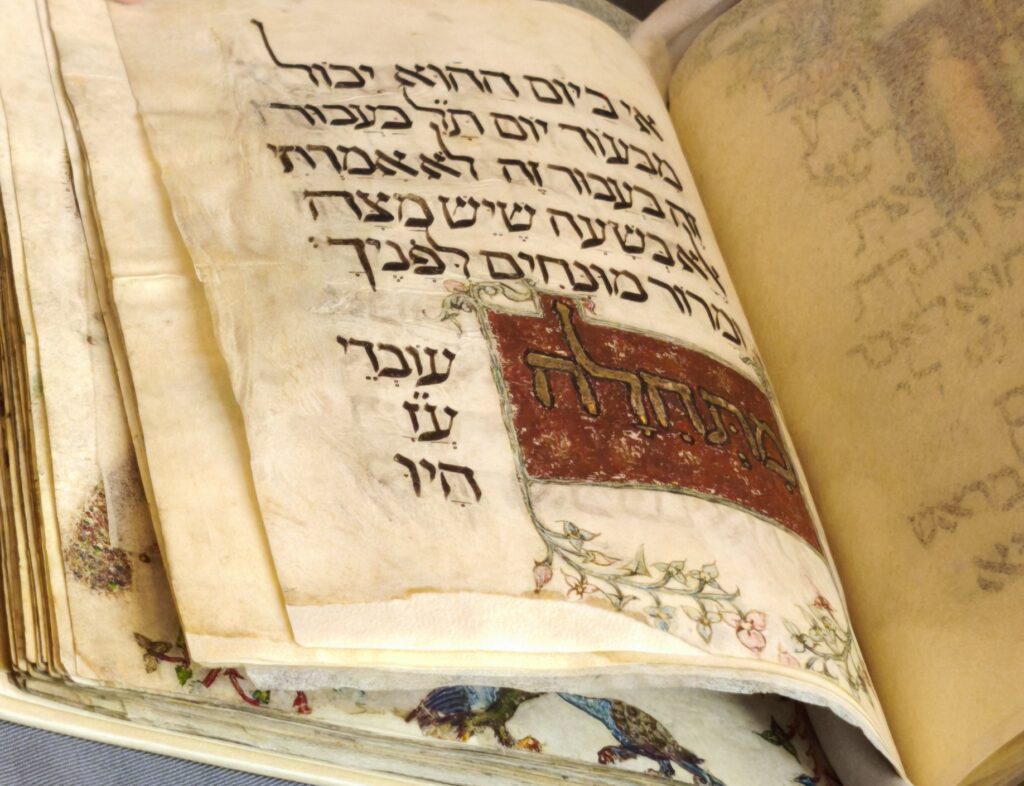 אי ביום ההוא יכול
מבעוד יום ת״ל בעבור
זה בעבור זה לא אמרתי
אלא בשעה שיש מצה
ומרור מונחים לפניך
מתחלה עובדי
ע״ז
היו